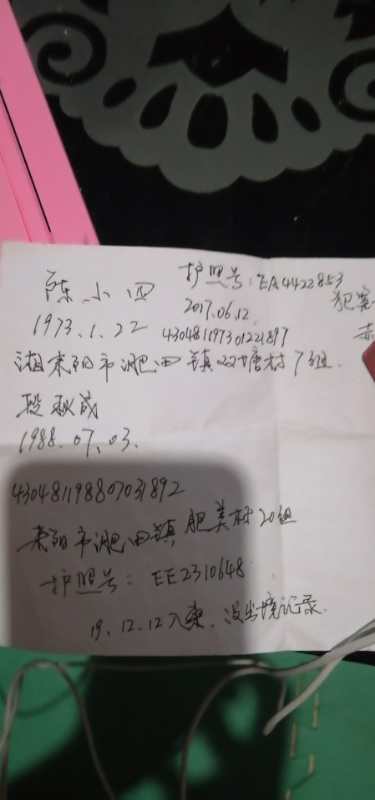 陈小四
护照号:EA4422853
2017.06.12
犯案
1973.1.22
430481197301221897
湘耒阳市淝田镇双塘村7组
段秋成
1988.07.03.
430481198807031892
耒阳市淝田镇肥美村20组
护照号: EE2310648
19.12.12入柬.没出境记录.